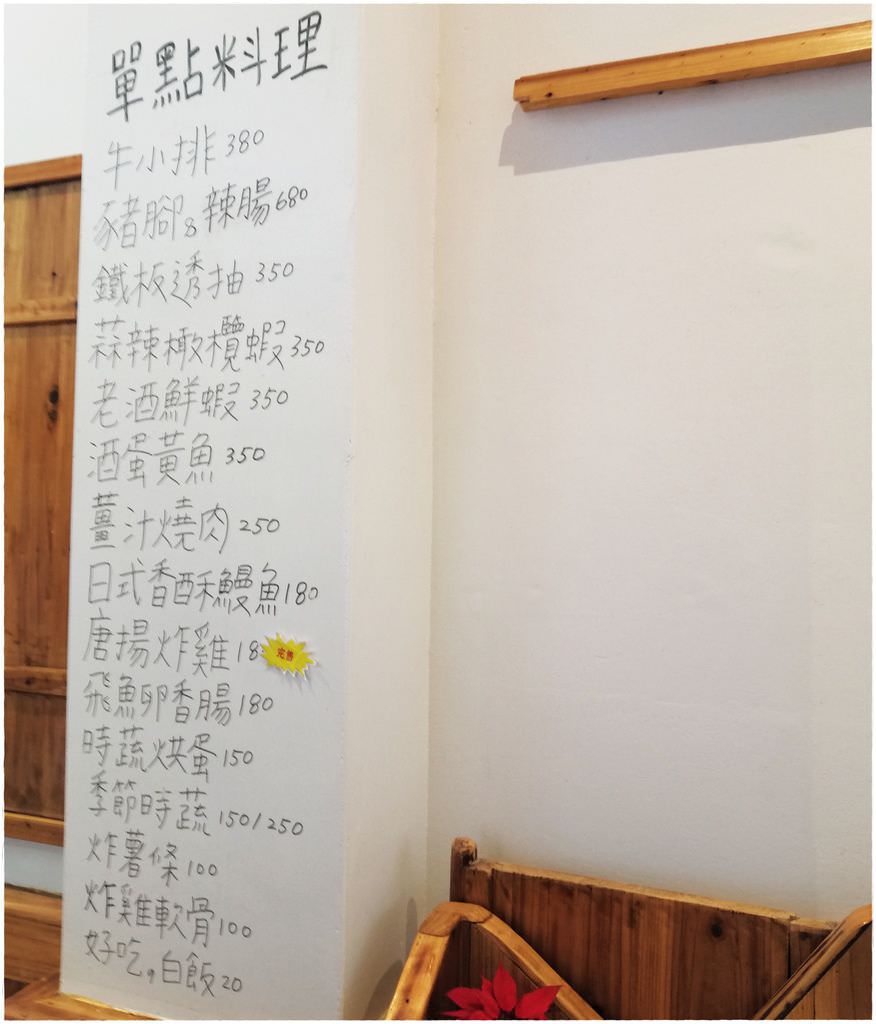 單點料理
牛小排 380
豬腳&辣腸 680
鐵板透抽 350
蒜辣橄欖蝦 350
老酒鮮蝦 350
酒蛋黃魚 350
薑汁燒肉 250
日式香酥鰻魚 180
唐揚炸雞 18 完售
飛魚卵香腸 180
時蔬烘蛋 150
季節時蔬 150/250
炸薯條 100
炸雞軟骨 100
好吃。白飯 20